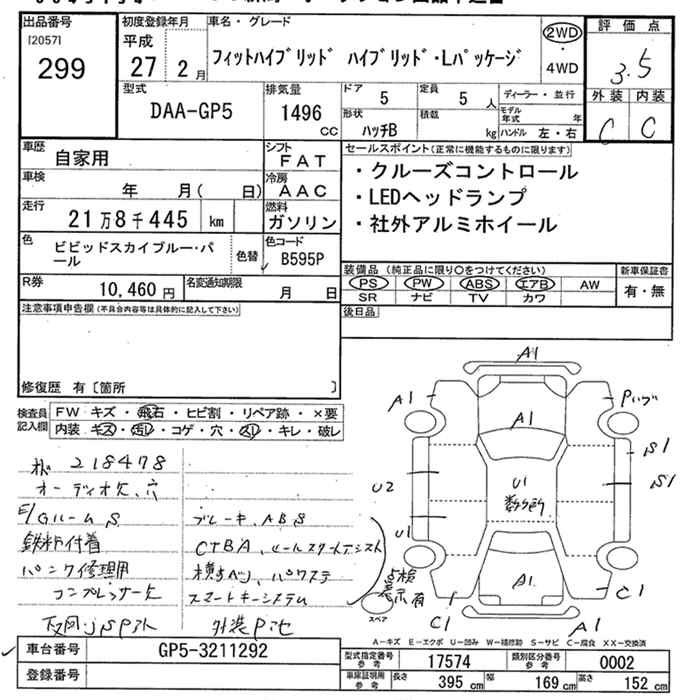 出品番号 初度登録年月 車名・グレード 2WD 評価点
[2057] 平成 ・
299 27 2月 フィットハイブリッド ハイブリッド・Lパッケージ 4WD 3.5
型式 排気量 ドア 定員 ディーラー・並行 外装 内装
DAA-GP5 1496 cc 5 5人 モデル年式 年 C C
形状 積載 ハンドル 左・右
ハッチB kg
車歴 自家用 シフト FAT セールスポイント(正常に機能するものに限ります)
車検 年 月( 日) 冷房 AAC ・クルーズコントロール
走行 21万8千445 km 燃料 ガソリン ・LEDヘッドランプ
・社外アルミホイール
色 ビビッドスカイブルー・パール 色替 色コード B595P
装備品(純正品に限り○をつけてください) 新車保証書
PS PW ABS エアB AW 有・無
SR ナビ TV カワ
R券 10,460円 名変通知期限 月 日
後日品
注意事項申告欄(不具合内容等は具体的に記入して下さい)
修復歴 有〔箇所 〕
検査員記入欄 FW キズ・飛石・ヒビ割・リペア跡・×要
内装 キズ・汚レ・コゲ・穴・スレ・キレ・破レ
218478
オーディオ欠、穴
E/Gルーム S ブレーキ、ABS
鉄粉付着 CTBA、ヒールスタートアシスト
パンク修理用 横すべり、パワステ
コンプレッサー欠 スマートキーシステム
点検
表示有
A1
A1
A1
S1
S1
U2
U1
U1
数ヶ所
A1
C1
C1
A1
スペア
A-キズ E-エクボ U-凹み W-補修跡 S-サビ C-腐食 XX-交換済
車台番号 GP5-3211292 型式指定番号 参考 17574 類別区分番号 参考 0002
登録番号 車庫証明用 参考 長さ 395cm 幅 169cm 高さ 152cm